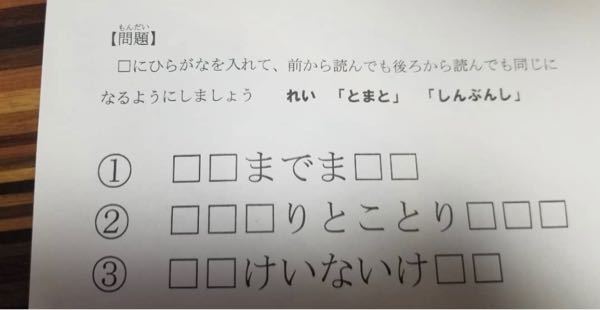 もんだい
【問題】
□にひらがなを入れて、前から読んでも後ろから読んでも同じに
なるようにしましょう　れい　「とまと」　「しんぶんし」
① □□までま□□
② □□□りとことり□□□
③ □□けいないけ□□